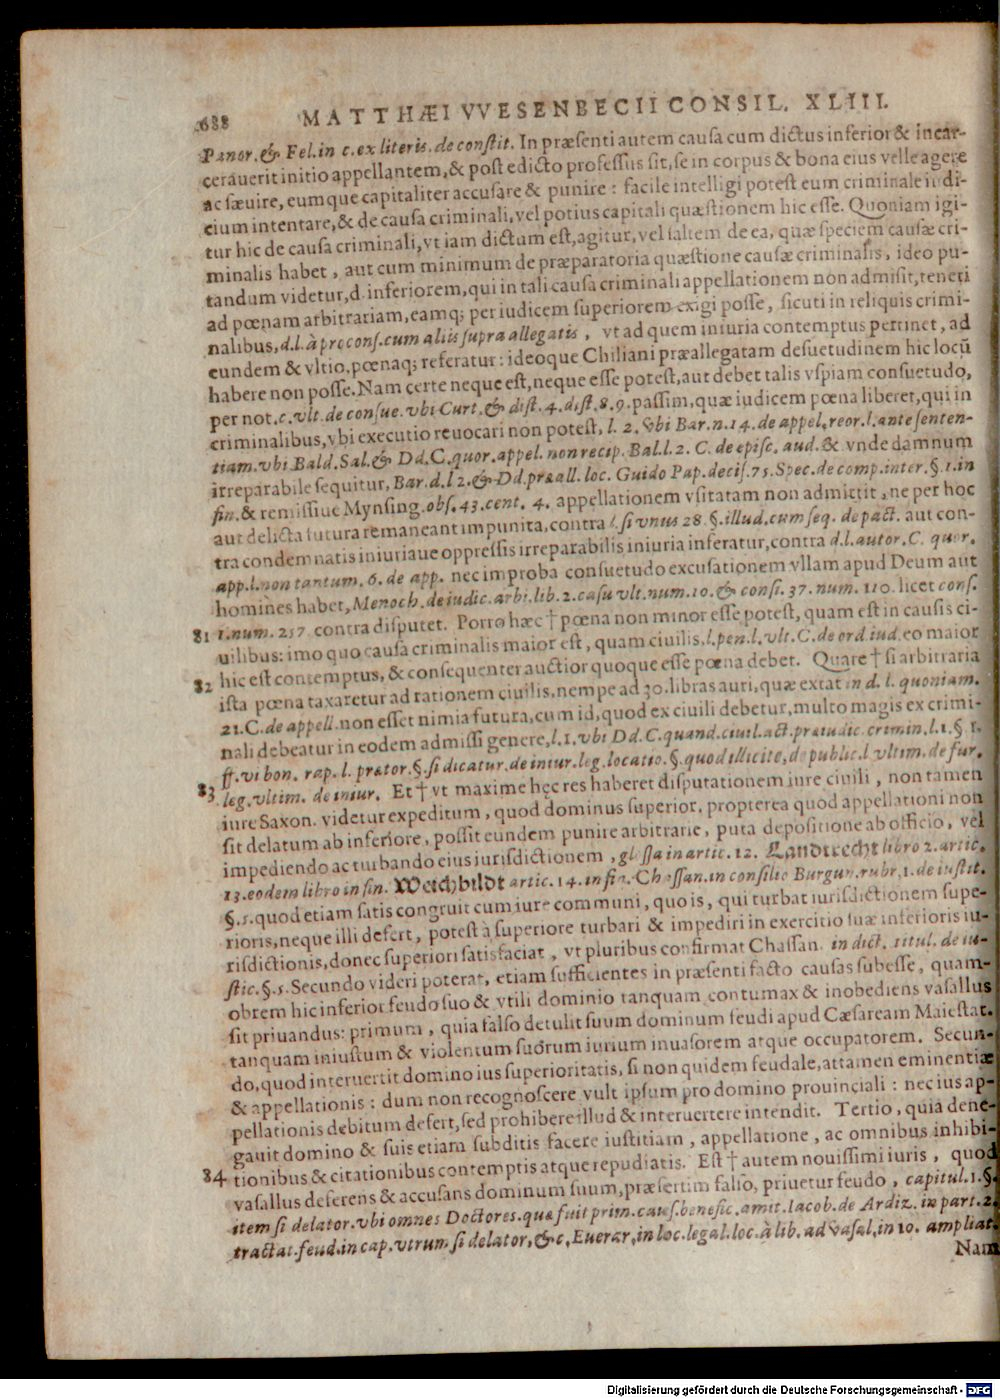 688 MATTHÆI VVESENBECII CONSIL. XLIII.
Panor. & Fel. in c. ex literis. de constit. In præsenti autem causa cum dictus inferior & incar-
cerauerit initio appellantem, & post edicto professus sit, se in corpus & bona eius velle agere
ac sæuire, eumque capitaliter accusare & punire: facile intelligi potest eum criminale iudi-
cium intentare, & de causa criminali, vel potius capitali quæstionem hic esse. Quoniam igi-
tur hic de causa criminali, vt iam dictum est, agitur, vel saltem de ea, quæ speciem causæ cri-
minalis habet, aut cum minimum de præparatoria quæstione causæ criminalis, ideo pu-
tandum videtur, d. inferiorem, qui in tali causa criminali appellationem non admisit, teneri
ad pœnam arbitrariam, eamq; per iudicem superiorem exigi posse, sicuti in reliquis crimi-
nalibus, d. l. à procons. cum aliis supra allegatis, vt ad quem iniuria contemptus pertinet, ad
eundem & vltio, pœnaq; referatur: ideoque Chiliani præallegatam desuetudinem hic locũ
habere non posse. Nam certe neque est, neque esse potest, aut debet talis vspiam consuetudo,
per not. c. vlt. de consue. vbi Curt. & dist. 4. dist. 8. 9. passim, quæ iudicem pœna liberet, qui in
criminalibus, vbi executio reuocari non potest, l. 2. vbi Bar. n. 14. de appel. reor. l. ante senten-
tiam. vbi Bald. Sal. & Dd. C. quor. appel. non recip. Bal. l. 2. C. de episc. aud. & vnde damnum
irreparabile sequitur, Bar. d. l 2. & Dd. præall. loc. Guido Pap. decis. 75. Spec. de comp. inter. §. 1. in
fin. & remissiue Mynsing. obs. 43. cent. 4. appellationem vsitatam non admittit, ne per hoc
aut delicta futura remaneant impunita, contra l. si vnus 28. §. illud. cum seq. de pact. aut con-
tra condemnatis iniuriaue oppressis irreparabilis iniuria inferatur, contra d. l. autor. C. quor.
app. l. non tantum. 6. de app. nec improba consuetudo excusationem vllam apud Deum aut
homines habet, Menoch. de iudic. arbi. lib. 2. casu vlt. num. 10. & consi. 37. num. 110. licet cons.
81 1. num. 257. contra disputet. Porro hæc † pœna non minor esse potest, quam est in causis ci-
uilibus: imo quo causa criminalis maior est, quam ciuilis, l. pen. l. vlt. C. de ord. iud. eo maior
82 hic est contemptus, & consequenter auctior quoque esse pœna debet. Quare † si arbitraria
ista pœna taxaretur ad rationem ciuilis, nempe ad 30. libras auri, quæ extat in d. l. quoniam.
21. C. de appell. non esset nimia futura, cum id, quod ex ciuili debetur, multo magis ex crimi-
nali debeatur in eodem admissi genere, l. 1. vbi Dd. C. quand. ciuil. act. præiudic. crimin. l. 1. §. 1.
ff. vi bon. rap. l. prætor. §. si dicatur. de iniur. leg. locatio. §. quod illicite, de public. l vltim. de fur.
83 leg. vltim. de iniur. Et † vt maxime hęc res haberet disputationem iure ciuili, non tamen
iure Saxon. videtur expeditum, quod dominus superior, propterea quod appellationi non
sit delatum ab inferiore, possit eundem punire arbitrarie, puta depositione ab officio, vel
impediendo ac turbando eius iurisdictionem, glossa in artic. 12. Landtrecht libro 2. artic.
13. eodem libro in fin. Weichbildt artic. 14. in fin. Chassan. in consilio Burgun. rubr. 1. de iustit.
§. 5. quod etiam satis congruit cum iure communi, quo is, qui turbat iurisdictionem supe-
rioris, neque illi defert, potest à superiore turbari & impediri in exercitio suæ inferioris iu-
risdictionis, donec superiori satisfaciat, vt pluribus confirmat Chassan. in dict. titul. de iu-
stic. §. 5. Secundo videri poterat, etiam sufficientes in præsenti facto causas subesse, quam-
obrem hic inferior feudo suo & vtili dominio tanquam contumax & inobediens vasallus
sit priuandus: primum, quia falso detulit suum dominum feudi apud Cæsaream Maiestat.
tanquam iniustum & violentum suorum iurium inuasorem atque occupatorem. Secun-
do, quod interuertit domino ius superioritatis, si non quidem feudale, attamen eminentiæ
& appellationis: dum non recognoscere vult ipsum pro domino prouinciali: nec ius ap-
pellationis debitum defert, sed prohibere illud & interuertere intendit. Tertio, quia dene-
gauit domino & suis etiam subditis facere iustitiam, appellatione, ac omnibus inhibi-
tionibus & citationibus contemptis atque repudiatis. Est † autem nouissimi iuris, quod
84 vasallus deferens & accusans dominum suum, præsertim falso, priuetur feudo, capitul. 1. §.
item si delator. vbi omnes Doctores. quæ fuit prim. caus. benefic. amit. Iacob. de Ardiz. in part. 2.
tractat. feud. in cap. vtrum si delator, & c. Euerar. in loc. legal. loc. à lib. ad vasal. in 10. ampliat.
Nam
Digitalisierung gefördert durch die Deutsche Forschungsgemeinschaft - DFG